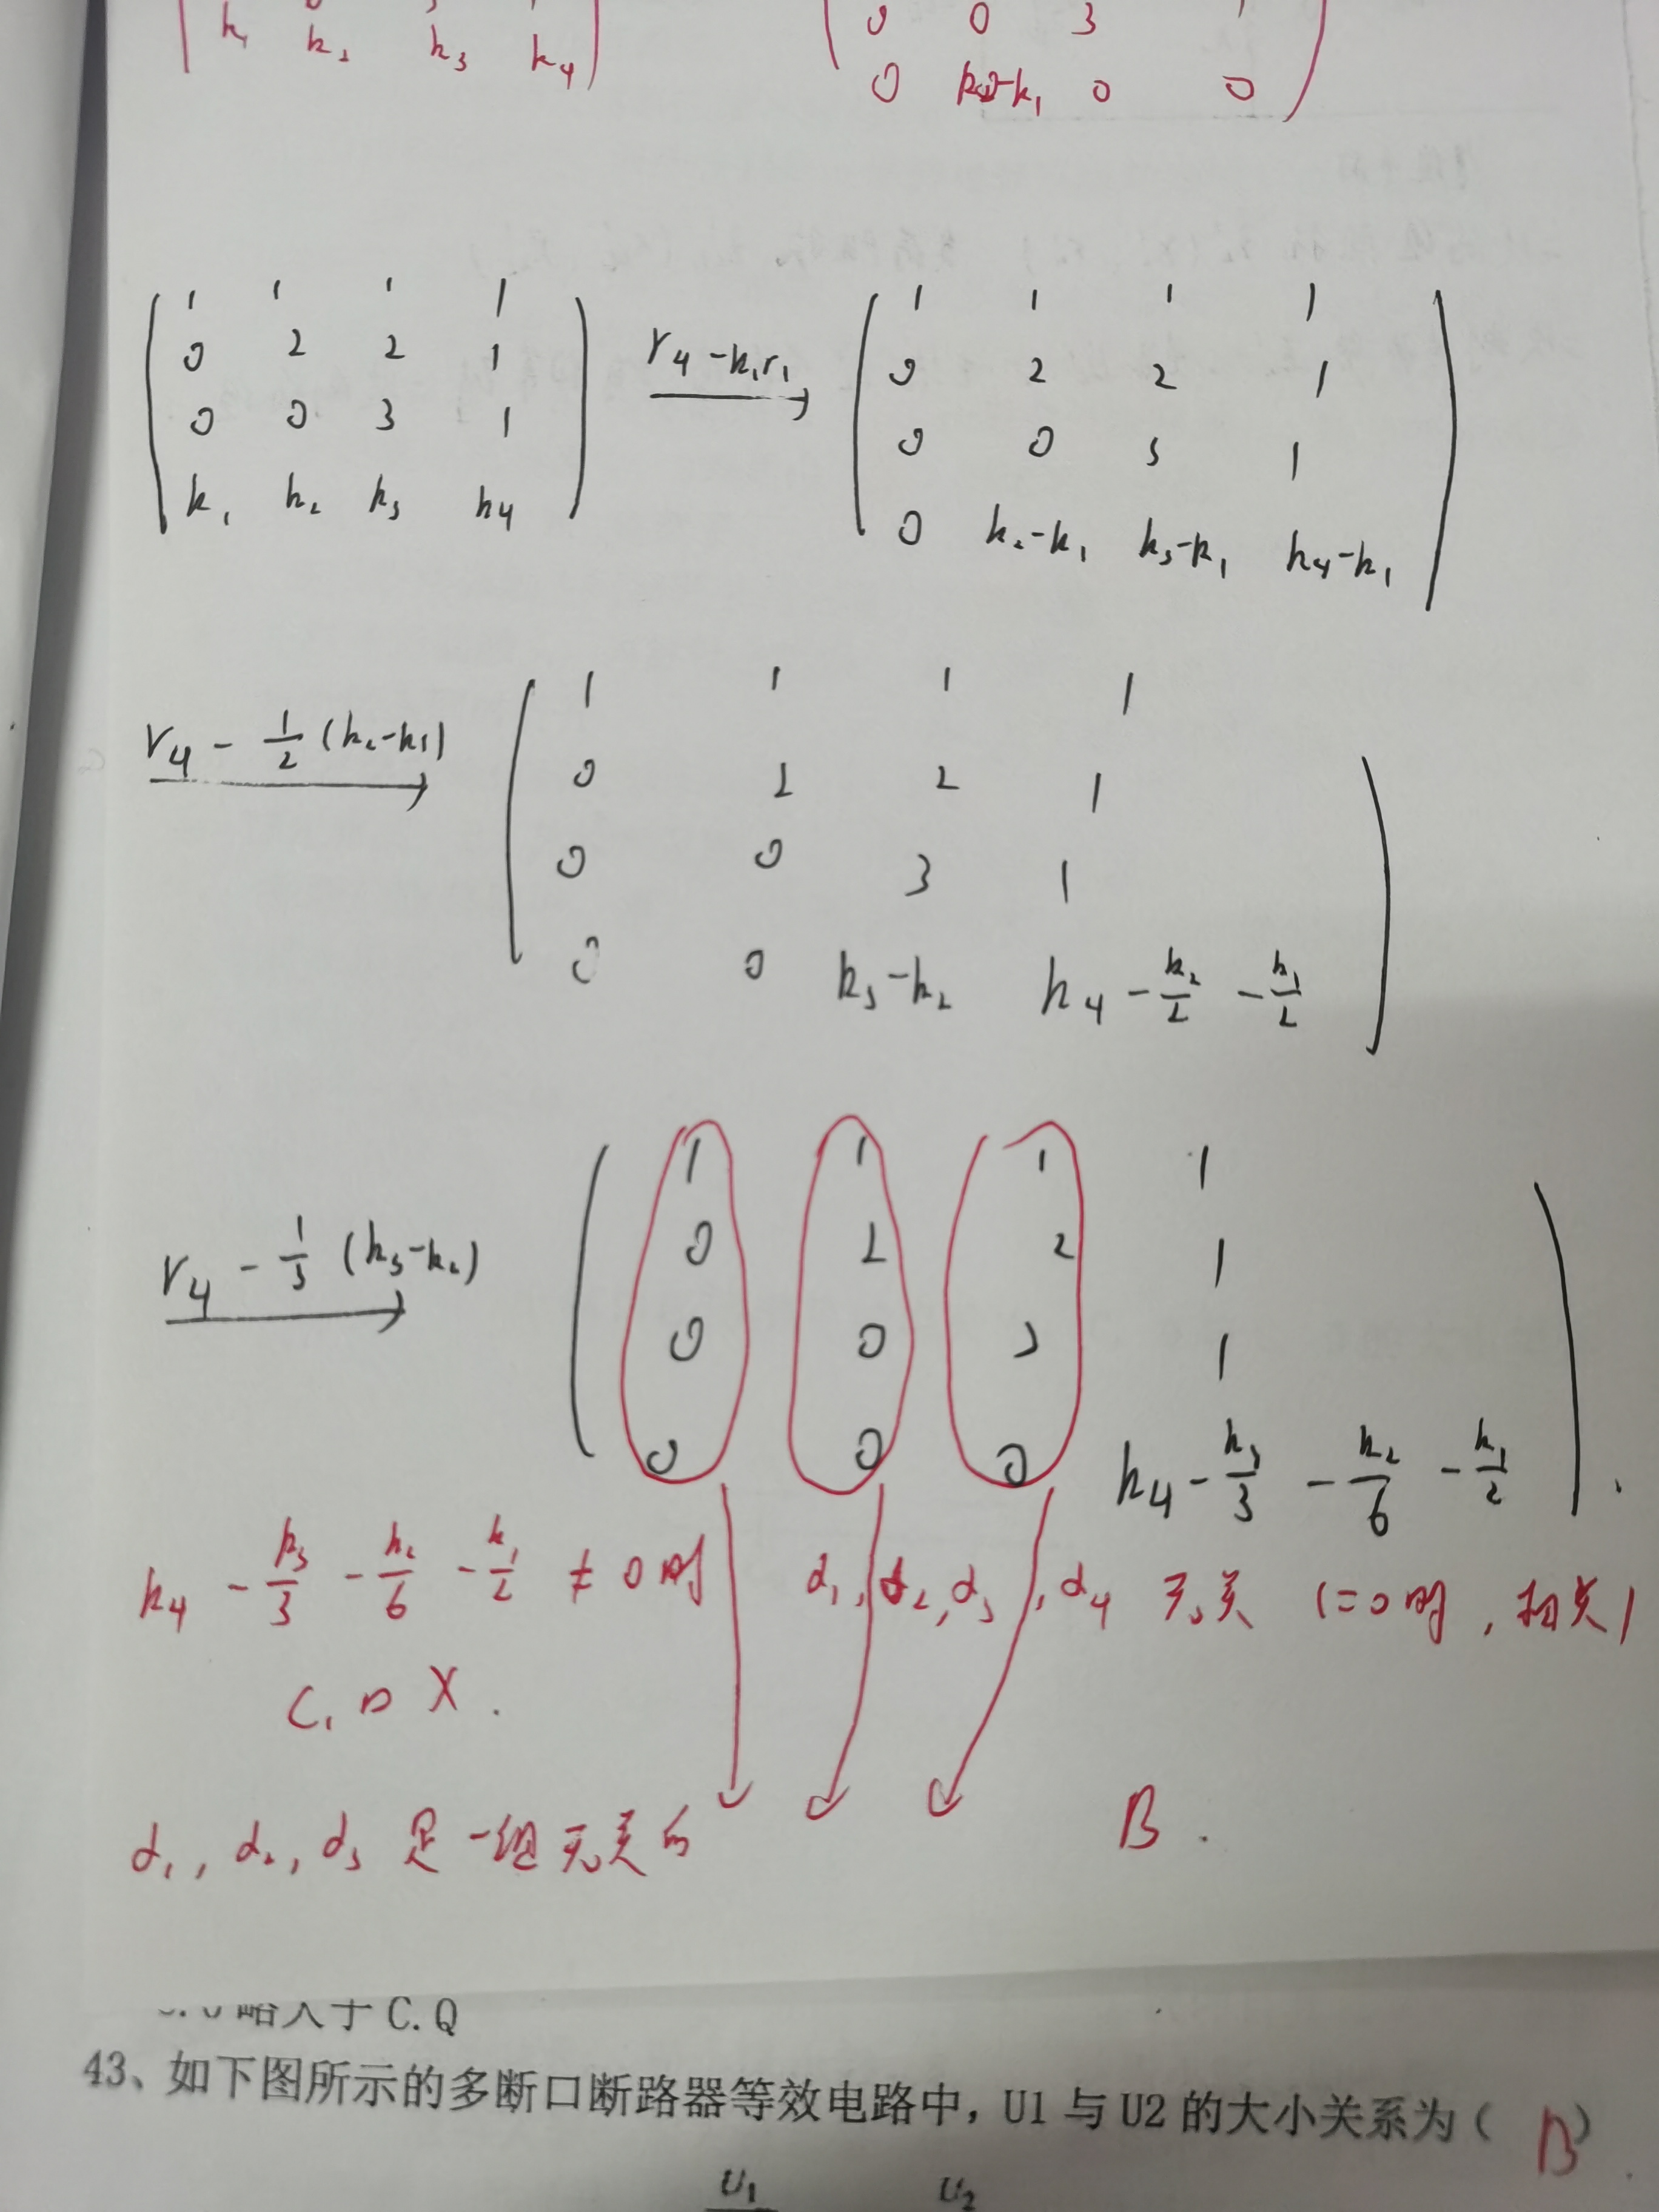 k₁ k₂ k₃ k₄
0 0 3
0 k₂-k₁ 0 0
1 1 1 1
0 2 2 1
0 0 3 1
k₁ k₂ k₃ k₄
r₄-k₁r₁
1 1 1 1
0 2 2 1
0 0 3 1
0 k₂-k₁ k₃-k₁ k₄-k₁
r₄ - 1/2 (k₂-k₁)
1 1 1 1
0 2 2 1
0 0 3 1
0 0 k₃-k₂ k₄ - k₂/2 - k₁/2
r₄ - 1/3 (k₃-k₂)
1 1 1 1
0 2 2 1
0 0 3 1
0 0 0 k₄ - k₃/3 - k₂/6 - k₁/2 .
k₄ - k₃/3 - k₂/6 - k₁/2 ≠ 0 时 α₁, α₂, α₃, α₄ 无关 (=0时, 相关)
C, D X .
α₁, α₂, α₃ 是一组无关的 B .
略大于 C.Q
43、如下图所示的多断口断路器等效电路中, U1 与 U2 的大小关系为( B )
U₁ U₂